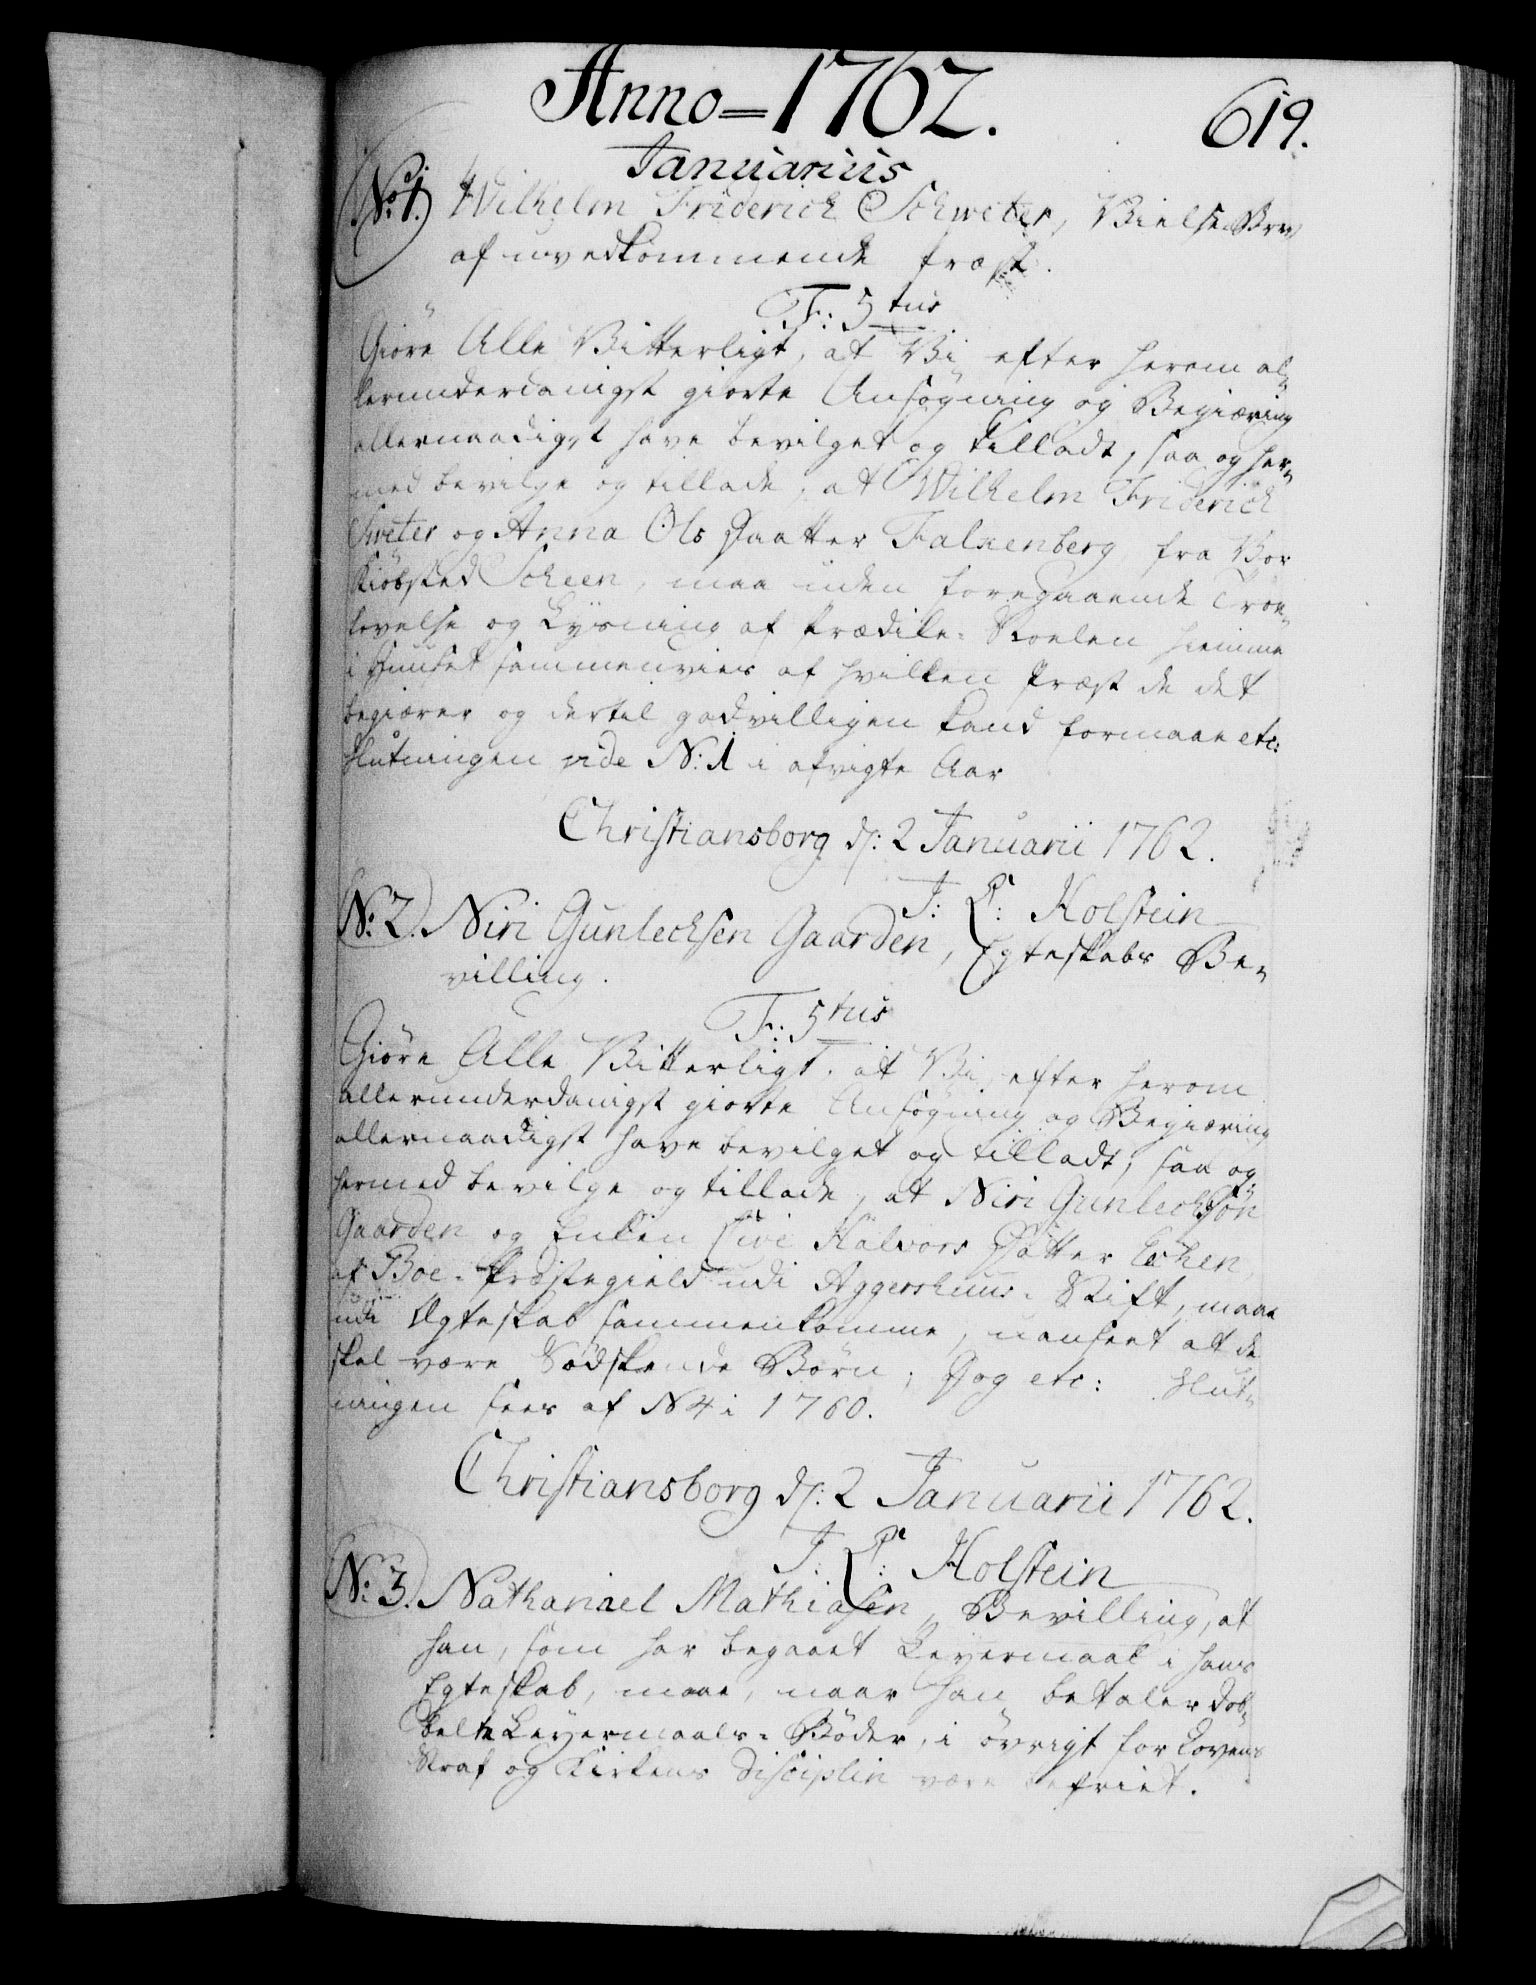 Anno = 1762.
619.
Januarius
No 1. Wilhelm Friderich Schweter, Vielse Brev
af uvedkommende Præst.
F: 5tus
Giøre Alle Vitterligt, at Vi efter herom al-
lerunderdanigst giorte Ansøgning og Begiæring
allernaadigst have bevilget og tilladt, saa og her-
med bevilge og tillade, at Wilhelm Friderich
og Anna Ols Daatter Falxenberg fra Vor
Kiøbsted Scheen, maa uden foregaaende Troe-
lovelse og Lysning af Prædike-Stoelen hiemme
i Huuset sammenvies af hvilken Præst de det
begiærer og dertil godvilligen kand formaae etc:
Slutningen vide N: 1 i afvigte Aar
Christiansborg d: 2 Januarii 1762.
J: L: Holstein
No 2. Niri Gunlechsen Gaarden, Egteskabs Be-
villing.
F: 5tus
Giøre Alle Vitterligt, at Vi efter herom
allerunderdanigst giorte Ansøgning og Begiæring
allernaadigst have bevilget og tilladt, saa og
hermed bevilge og tillade, at Niri Gunlechsøn
Gaarden og Enken Sive Halvors Datter
af Boe-Præstegield udi Aggershuus-Stift, maae
udi Ægteskab sammenkomme, uanseet at de
skal være Sødskende Børn; Dog etc: Slut-
ningen sees af N 4 i 1760.
Christiansborg d: 2 Januarii 1762.
J: L: Holstein
No 3. Nathanael Mathiasen, Bevilling, at
han, som har begaaet Leyermaal i hans
Egteskab, maae, naar han betaler dob-
belte Leyermaals-Bøder, i øvrigt for Lovens
Straf og Kirkens Disciplin være befriet.